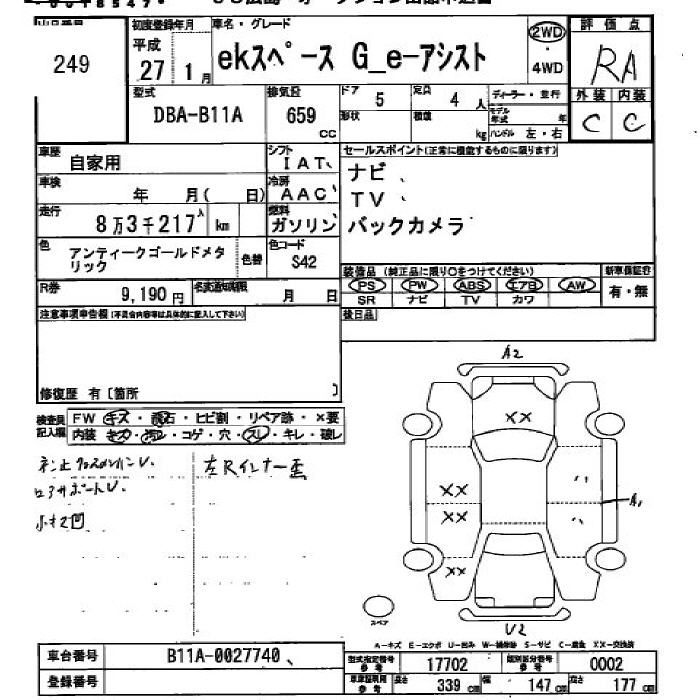 初度登録年月 車名・グレード 評価点
249
平成 27 1月 ekスペース G_e-アシスト 2WD ・ 4WD RA
型式 排気量 ドア 定員 ディーラー・並行 外装 内装
DBA-B11A 659 CC 5 4人 モデル年式 年 C C
形状 積載 kg ハンドル 左・右
車歴 自家用 シフト IAT、 セールスポイント(正常に機能するものに限ります)
車検 年 月( 日) 冷房 AAC、 ナビ、
走行 8万3千217 km 燃料 ガソリン TV、
バックカメラ
色 アンティークゴールドメタリック 色替 色コード S42
装備品 (純正品に限り○をつけてください) 新車保証書
R券 9,190円 名変通知期限 月 日 PS PW ABS エアB AW 有・無
SR ナビ TV カワ
注意事項申告欄(不具合内容等は具体的に記入して下さい) 後日品
修復歴 有〔箇所 〕
検査員記入欄 FW キズ・飛石・ヒビ割・リペア跡・×要
内装 キズ・汚れ・コゲ・穴・スレ・キレ・破レ
A2
XX
XX
XX
XX
A1
U2
左Rインナー歪
小キズ凹
スペア
A-キズ E-エクボ U-凹み W-補修跡 S-サビ C-腐食 XX-交換済
車台番号 B11A-0027740、 型式指定番号 参考 17702 類別区分番号 参考 0002
登録番号 車庫証明用 参考 長さ 339cm 幅 147cm 高さ 177cm